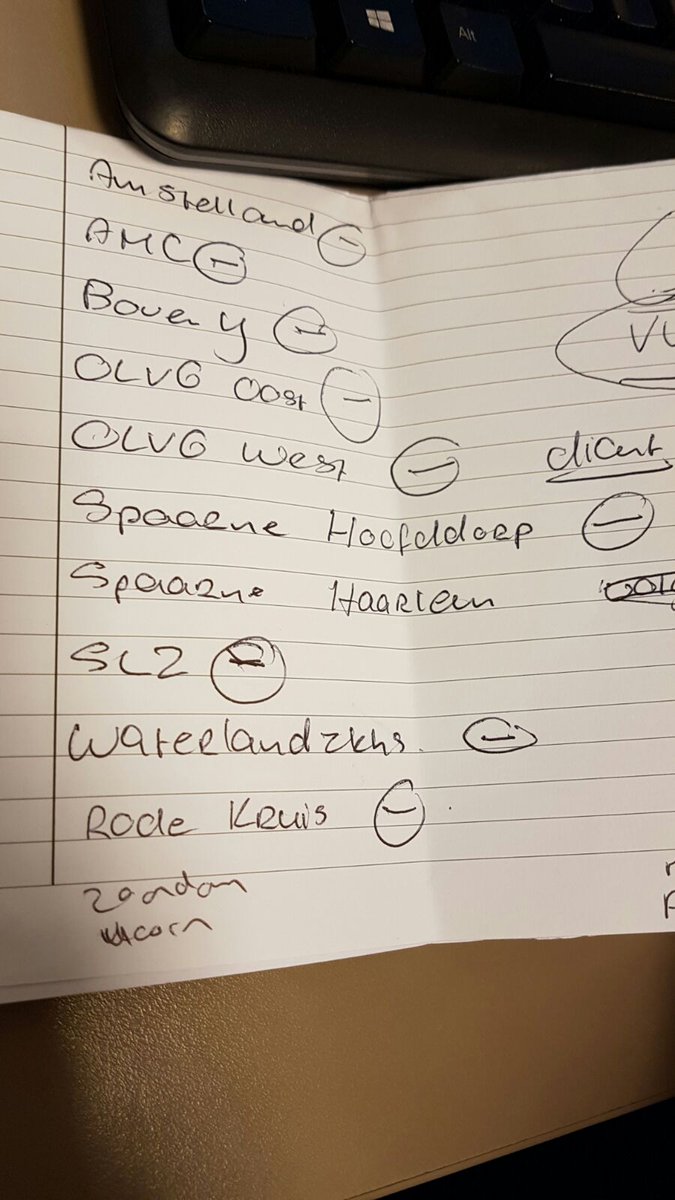 Alt
Amstelland ⊖
AMC ⊖
Boven y ⊖
VU
OLVG oost ⊖
OLVG west ⊖ client
Spaarne Hoofddorp ⊖
Spaarne Haarlem
SLZ ⊖
Waterlandzkhs. ⊖
Rode Kruis ⊖
Zaandam